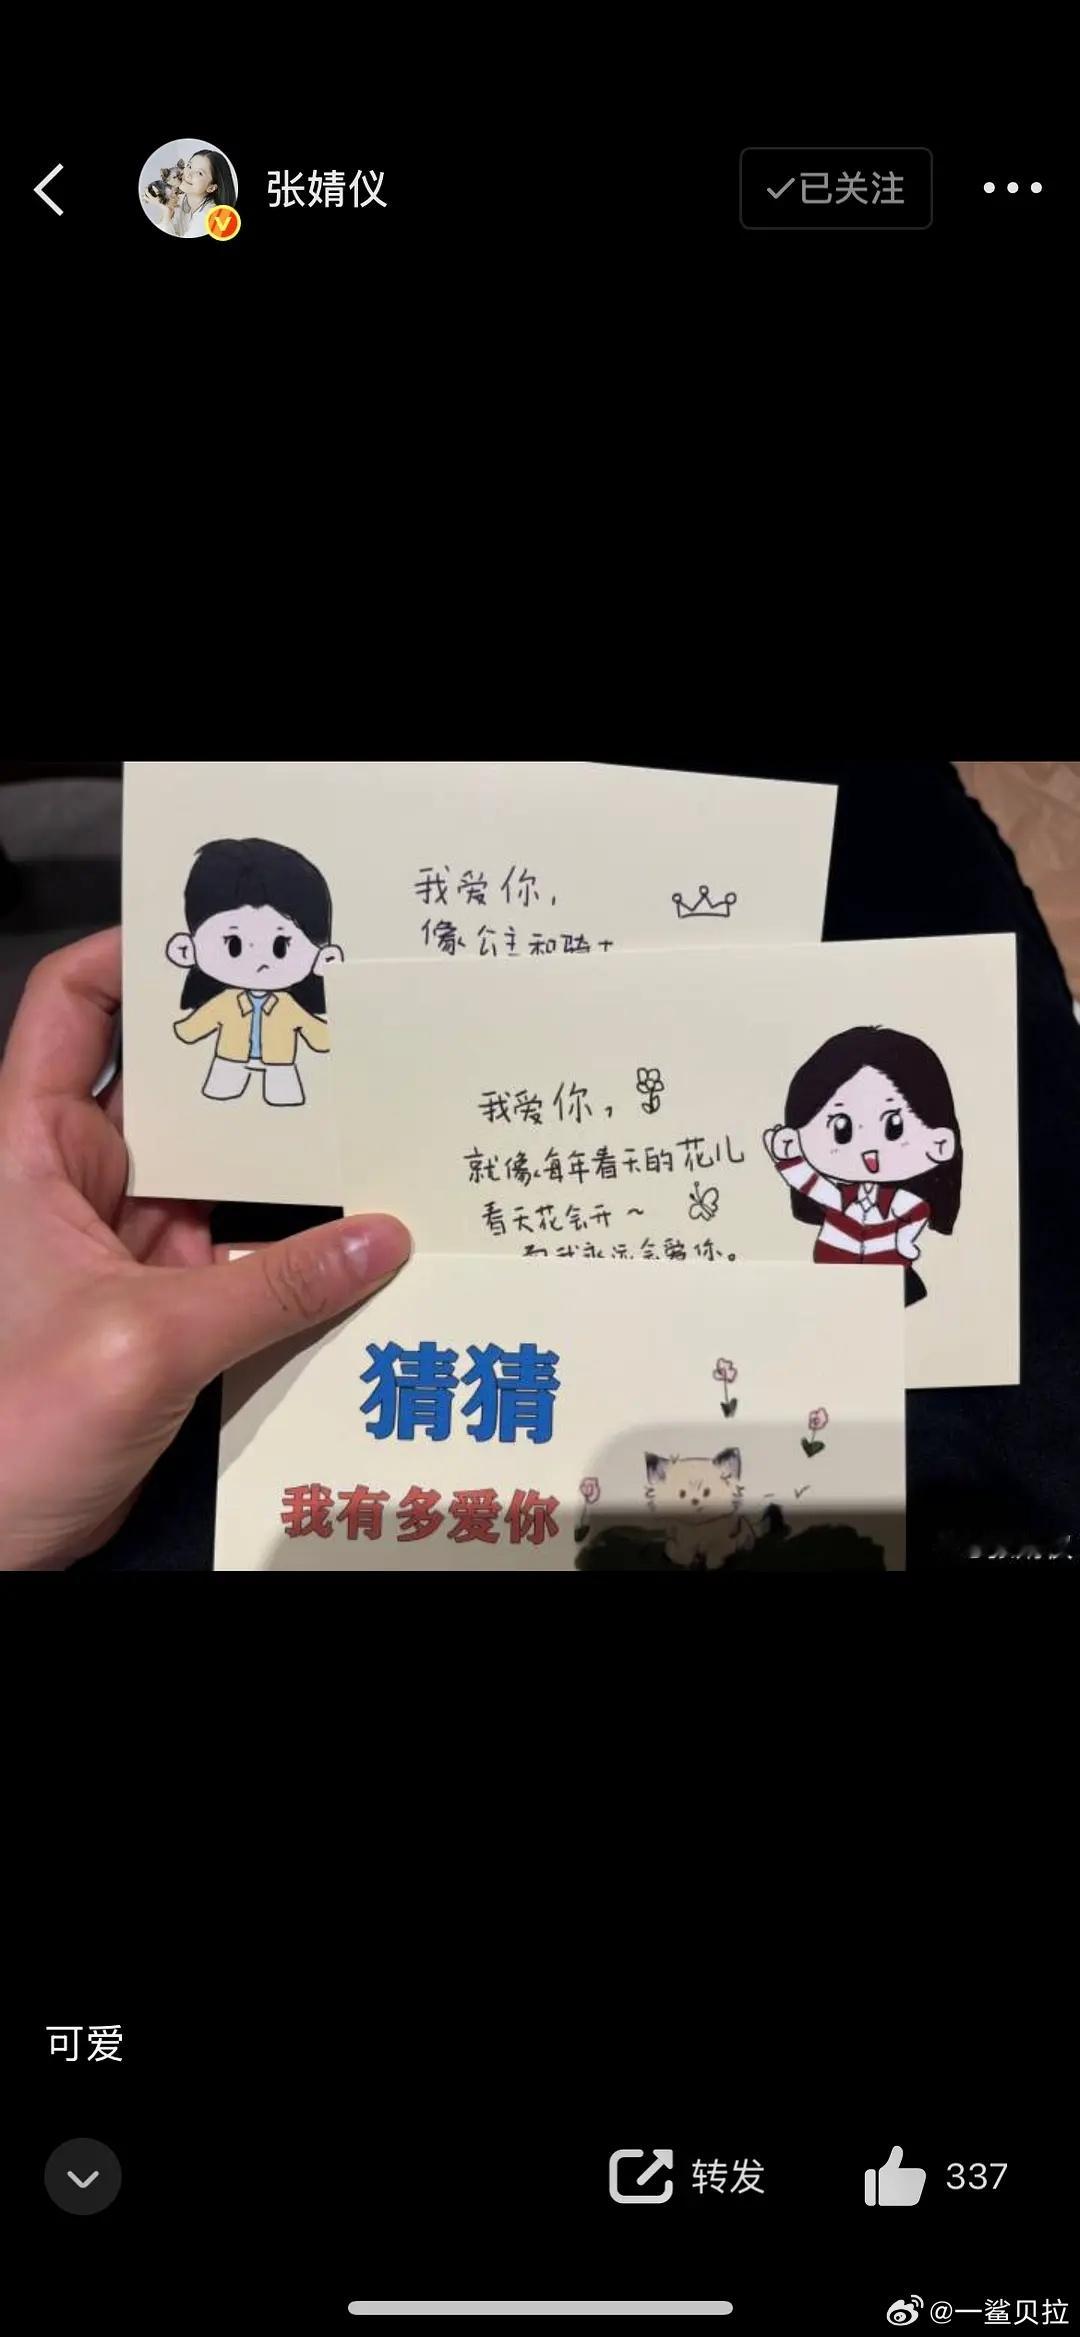 张婧仪
已关注
我爱你，
像公主和骑士
我爱你，
就像每年春天的花儿
春天花会开～
而我永远会爱你。
猜猜
我有多爱你
可爱
转发
337
@一鲨贝拉